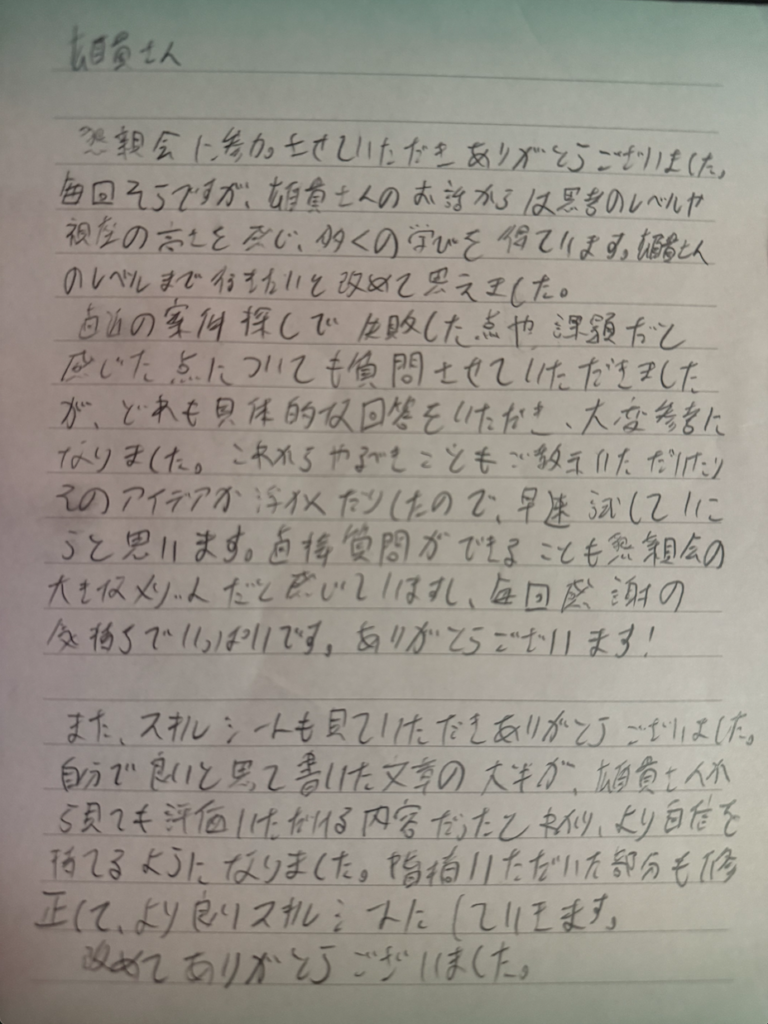 雄貴さん
懇親会に参加させていただきありがとうございました。
毎回そうですが、雄貴さんのお話からは思考のレベルや
視座の高さを感じ、多くの学びを得ています。雄貴さん
のレベルまで行きたいと改めて思えました。
直近の案件探しで失敗した点や課題だと
感じた点についても質問させていただきました
が、どれも具体的な回答をいただき、大変参考に
なりました。これからやるべきこともご教示いただけたり
そのアイデアが浮かんだりしたので、早速試していこ
うと思います。直接質問ができることも懇親会の
大きなメリットだと感じていますし、毎回感謝の
気持ちでいっぱいです。ありがとうございます!
また、スキルシートも見ていただきありがとうございました。
自分で良いと思て書いた文章の大半が、雄貴さんか
ら見ても評価いただける内容だったとわかり、より自信を
持てるようになりました。指摘いただいた部分も修
正して、より良いスキルシートにしていきます。
改めてありがとうございました。